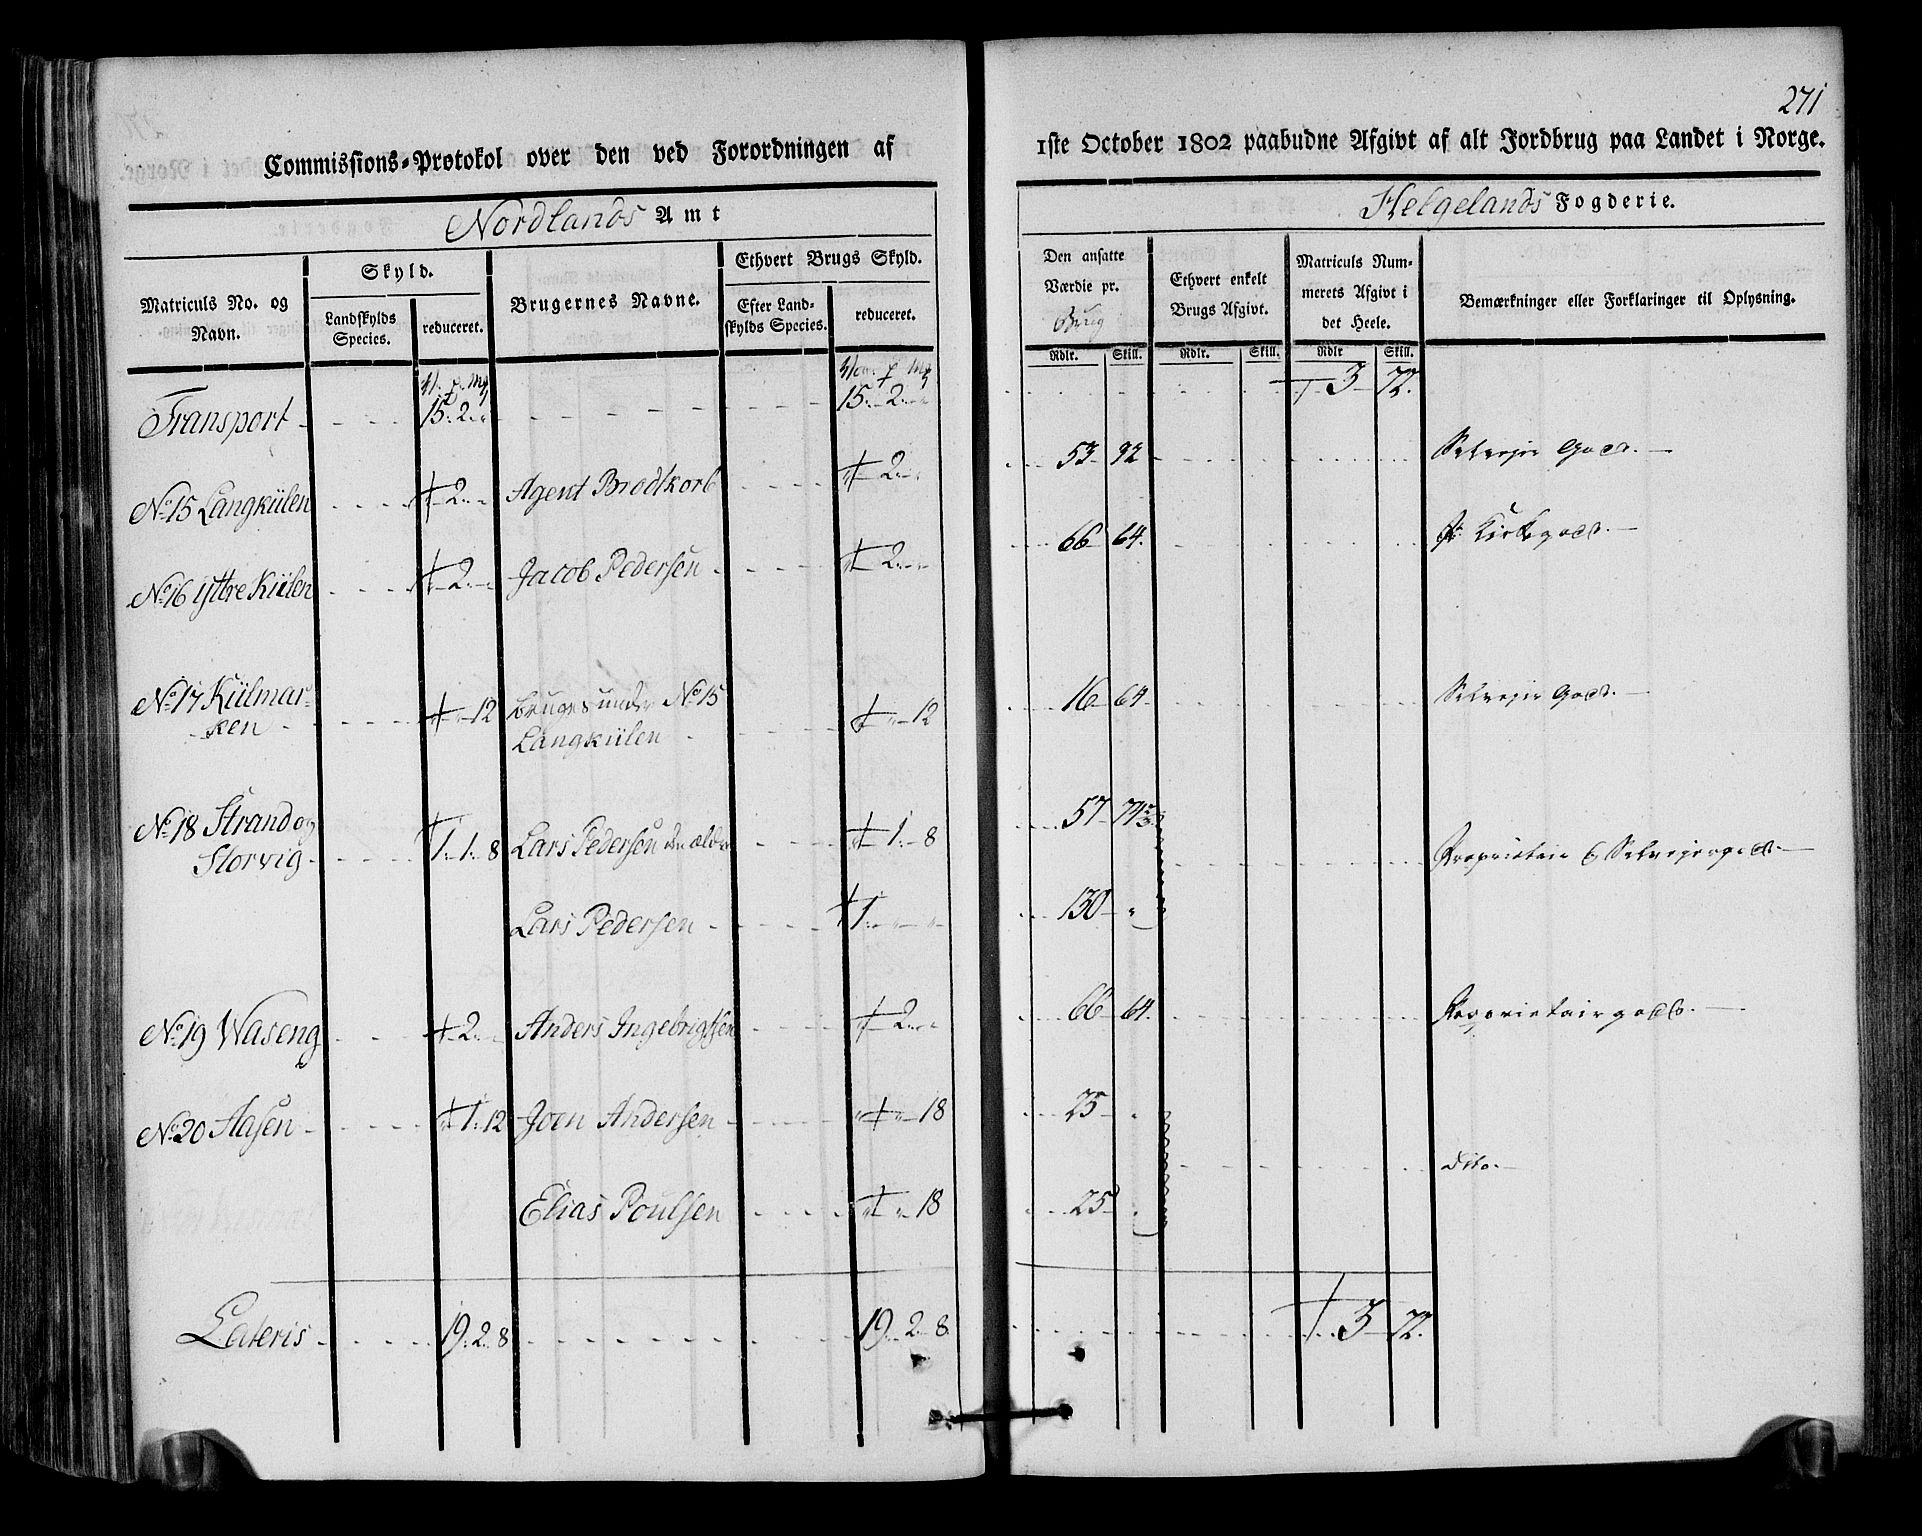 271
Commissions-Protokol over den ved Forordningen af 1ste October 1802 paabudne Afgivt af alt Jordbrug paa Landet i Norge.
Nordlands Amt
Helgelands Fogderie.
Matriculs No. og Navn.
Skyld.
Landskylds Species.
reduceret.
Brugernes Navne.
Ethvert Brugs Skyld.
Efter Landskylds Species.
reduceret.
Den ansatte Værdie pr. Brug
Rdlr. Skill.
Ethvert enkelt Brugs Afgivt.
Rdlr. Skill.
Matriculs Nummerets Afgivt i det Heele.
Rdlr Skill.
Bemærkninger eller Forklaringer til Oplysning.
Transport 15. 2. " 15. 2. " 3 72.
No. 15 Langkiilen 2. " Agent Brodtkorb 2. " 53 92 Selveier Gods.
No. 16 Ittre Kiilen 2. " Jacob Pedersen 2. " 66 64. Kirkegods.
No. 17 Kiilmarken " 12 bruges under No. 15 Langkiilen " 12 16 64. Selveier Gods.
No. 18 Strand og Storvig 1. 1. 8 Lars Pedersen den ældre 1. 8 57 74
Lars Pedersen 1. " " 130 " Proprietair & Selveiergods.
No. 19 Waseng 2. " Anders Ingebrigtsen 2. " 66 64. Proprietairgods.
No. 20 Aasen 1. 12 Joen Andersen " 18 25 "
Elias Poulsen " 18 25 " dito.
Lateris 19. 2. 8 19. 2. 8. 3 72.